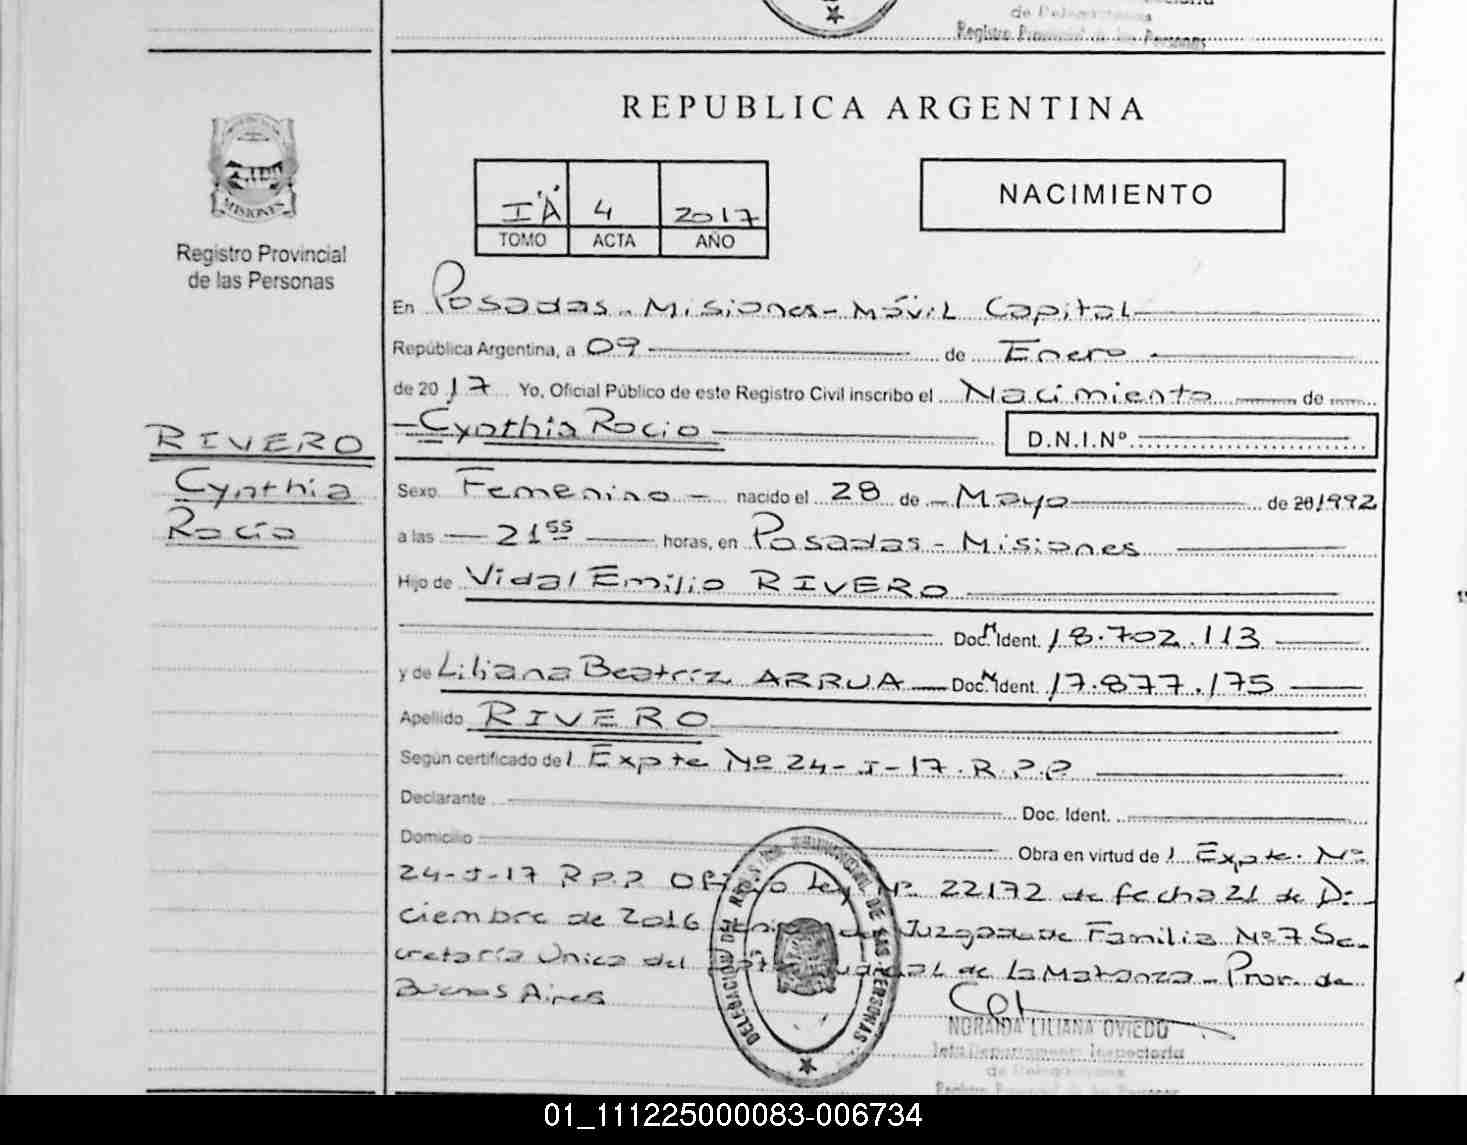 Registro Provincial de las Personas
REPUBLICA ARGENTINA
NACIMIENTO
I "A" 4 2017
TOMO ACTA AÑO
MISIONES
Registro Provincial
de las Personas
En Posadas - Misiones - Móvil Capital
República Argentina, a 09 de Enero
de 2017 Yo, Oficial Público de este Registro Civil inscribo el Nacimiento de
Cynthia Rocio D.N.I.Nº
RIVERO
Cynthia
Rocío
Sexo Femenino - nacido el 28 de Mayo de 20 1992
a las 21 55 horas, en Posadas - Misiones
Hijo de Vidal Emilio RIVERO
Doc. M Ident. 18.702.113
y de Liliana Beatríz ARRUA Doc. M Ident. 17.877.175
Apellido RIVERO
Según certificado de l Expte Nº 24-J-17.R.P.P
Declarante Doc. Ident.
Domicilio Obra en virtud de l Expte. Nº
24-J-17 R.P.P Oficio Ley Nº 22172 de fecha 21 de Di-
ciembre de 2016 del Juzgado de Familia Nº 7 Se-
cretaría Unica del de La Matanza - Prov. de
Buenos Aires
DELEGACION DEL REGISTRO PROVINCIAL DE LAS PERSONAS
NORAIDA LILIANA OVIEDO
Jefa Departamento Inspectoria
de Delegaciones
Registro Provincial de las Personas
01_111225000083-006734